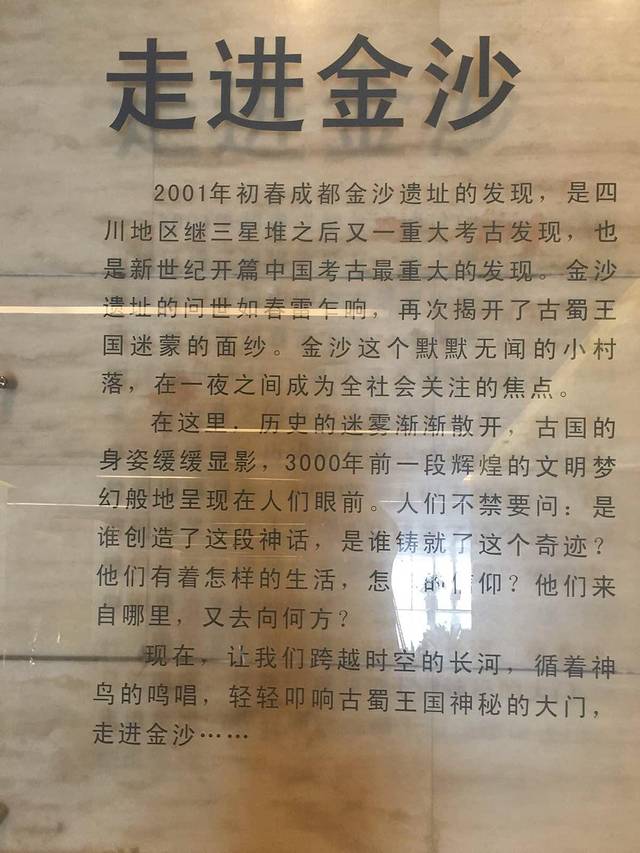 走进金沙
2001年初春成都金沙遗址的发现，是四
川地区继三星堆之后又一重大考古发现，也
是新世纪开篇中国考古最重大的发现。金沙
遗址的问世如春雷乍响，再次揭开了古蜀王
国迷蒙的面纱。金沙这个默默无闻的小村
落，在一夜之间成为全社会关注的焦点。
在这里，历史的迷雾渐渐散开，古国的
身姿缓缓显影，3000年前一段辉煌的文明梦
幻般地呈现在人们眼前。人们不禁要问：是
谁创造了这段神话，是谁铸就了这个奇迹？
他们有着怎样的生活，怎 的信仰？他们来
自哪里，又去向何方？
现在，让我们跨越时空的长河，循着神
鸟的鸣唱，轻轻叩响古蜀王国神秘的大门，
走进金沙……